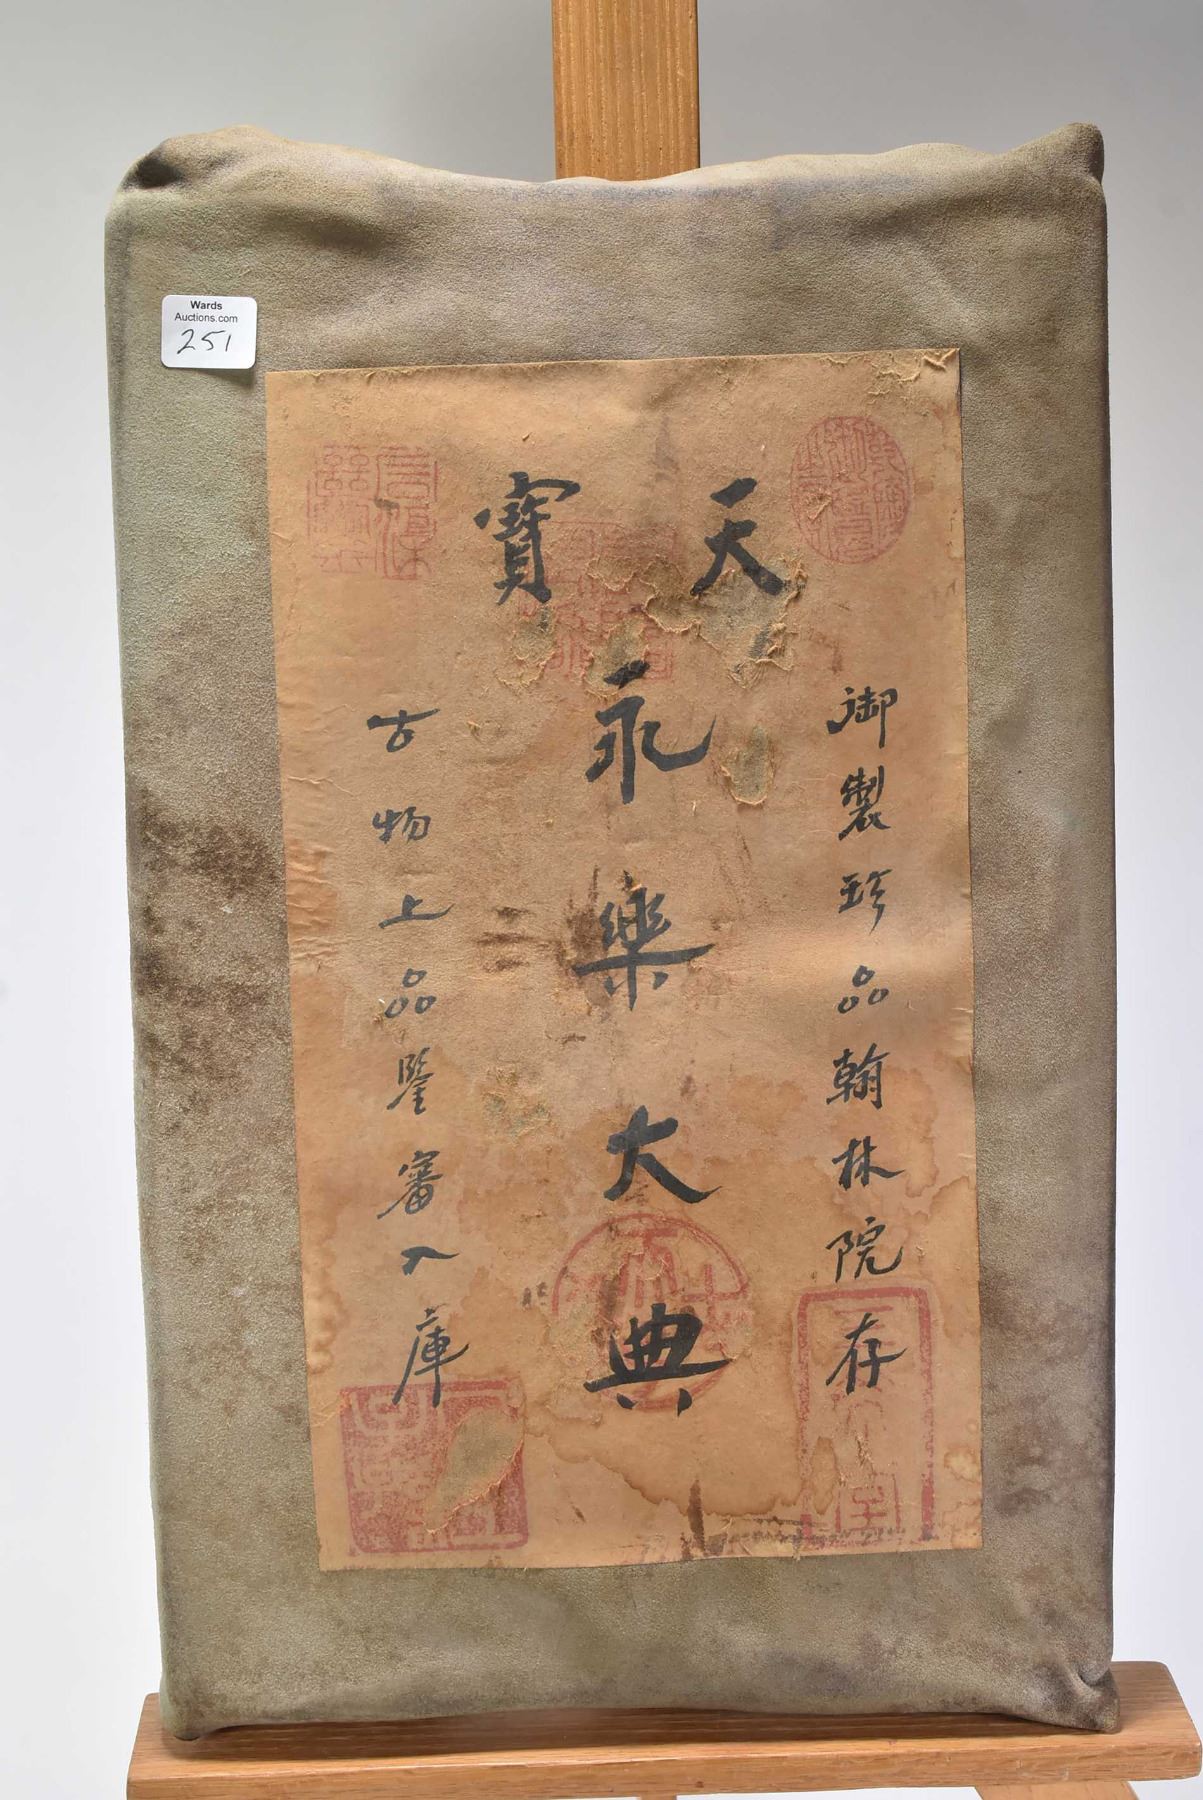 Wards
Auctions.com
251
天寶
御製珍品翰林院存
永樂大典
古物上品鑒審入庫